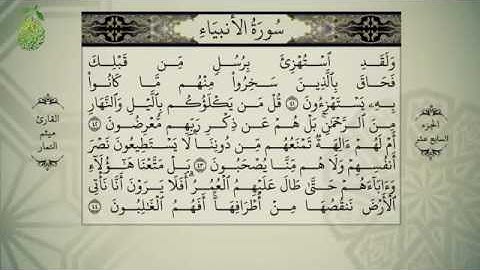 سُورَةُ الأَنبِيَاءِ
وَلَقَدِ ٱسْتُهْزِئَ بِرُسُلٍ مِّن قَبْلِكَ
فَحَاقَ بِٱلَّذِينَ سَخِرُوا۟ مِنْهُم مَّا كَانُوا۟
بِهِۦ يَسْتَهْزِءُونَ ٤١ قُلْ مَن يَكْلَؤُكُم بِٱلَّيْلِ وَٱلنَّهَارِ
مِنَ ٱلرَّحْمَٰنِ ۗ بَلْ هُمْ عَن ذِكْرِ رَبِّهِم مُّعْرِضُونَ ٤٢
أَمْ لَهُمْ ءَالِهَةٌ تَمْنَعُهُم مِّن دُونِنَا ۚ لَا يَسْتَطِيعُونَ نَصْرَ
أَنفُسِهِمْ وَلَا هُم مِّنَّا يُصْحَبُونَ ٤٣ بَلْ مَتَّعْنَا هَٰٓؤُلَآءِ
وَءَابَآءَهُمْ حَتَّىٰ طَالَ عَلَيْهِمُ ٱلْعُمُرُ ۗ أَفَلَا يَرَوْنَ أَنَّا نَأْتِى
ٱلْأَرْضَ نَنقُصُهَا مِنْ أَطْرَافِهَآ ۚ أَفَهُمُ ٱلْغَٰلِبُونَ ٤٤
الجزء
السابع عشر
القارئ
ميثم
التمار